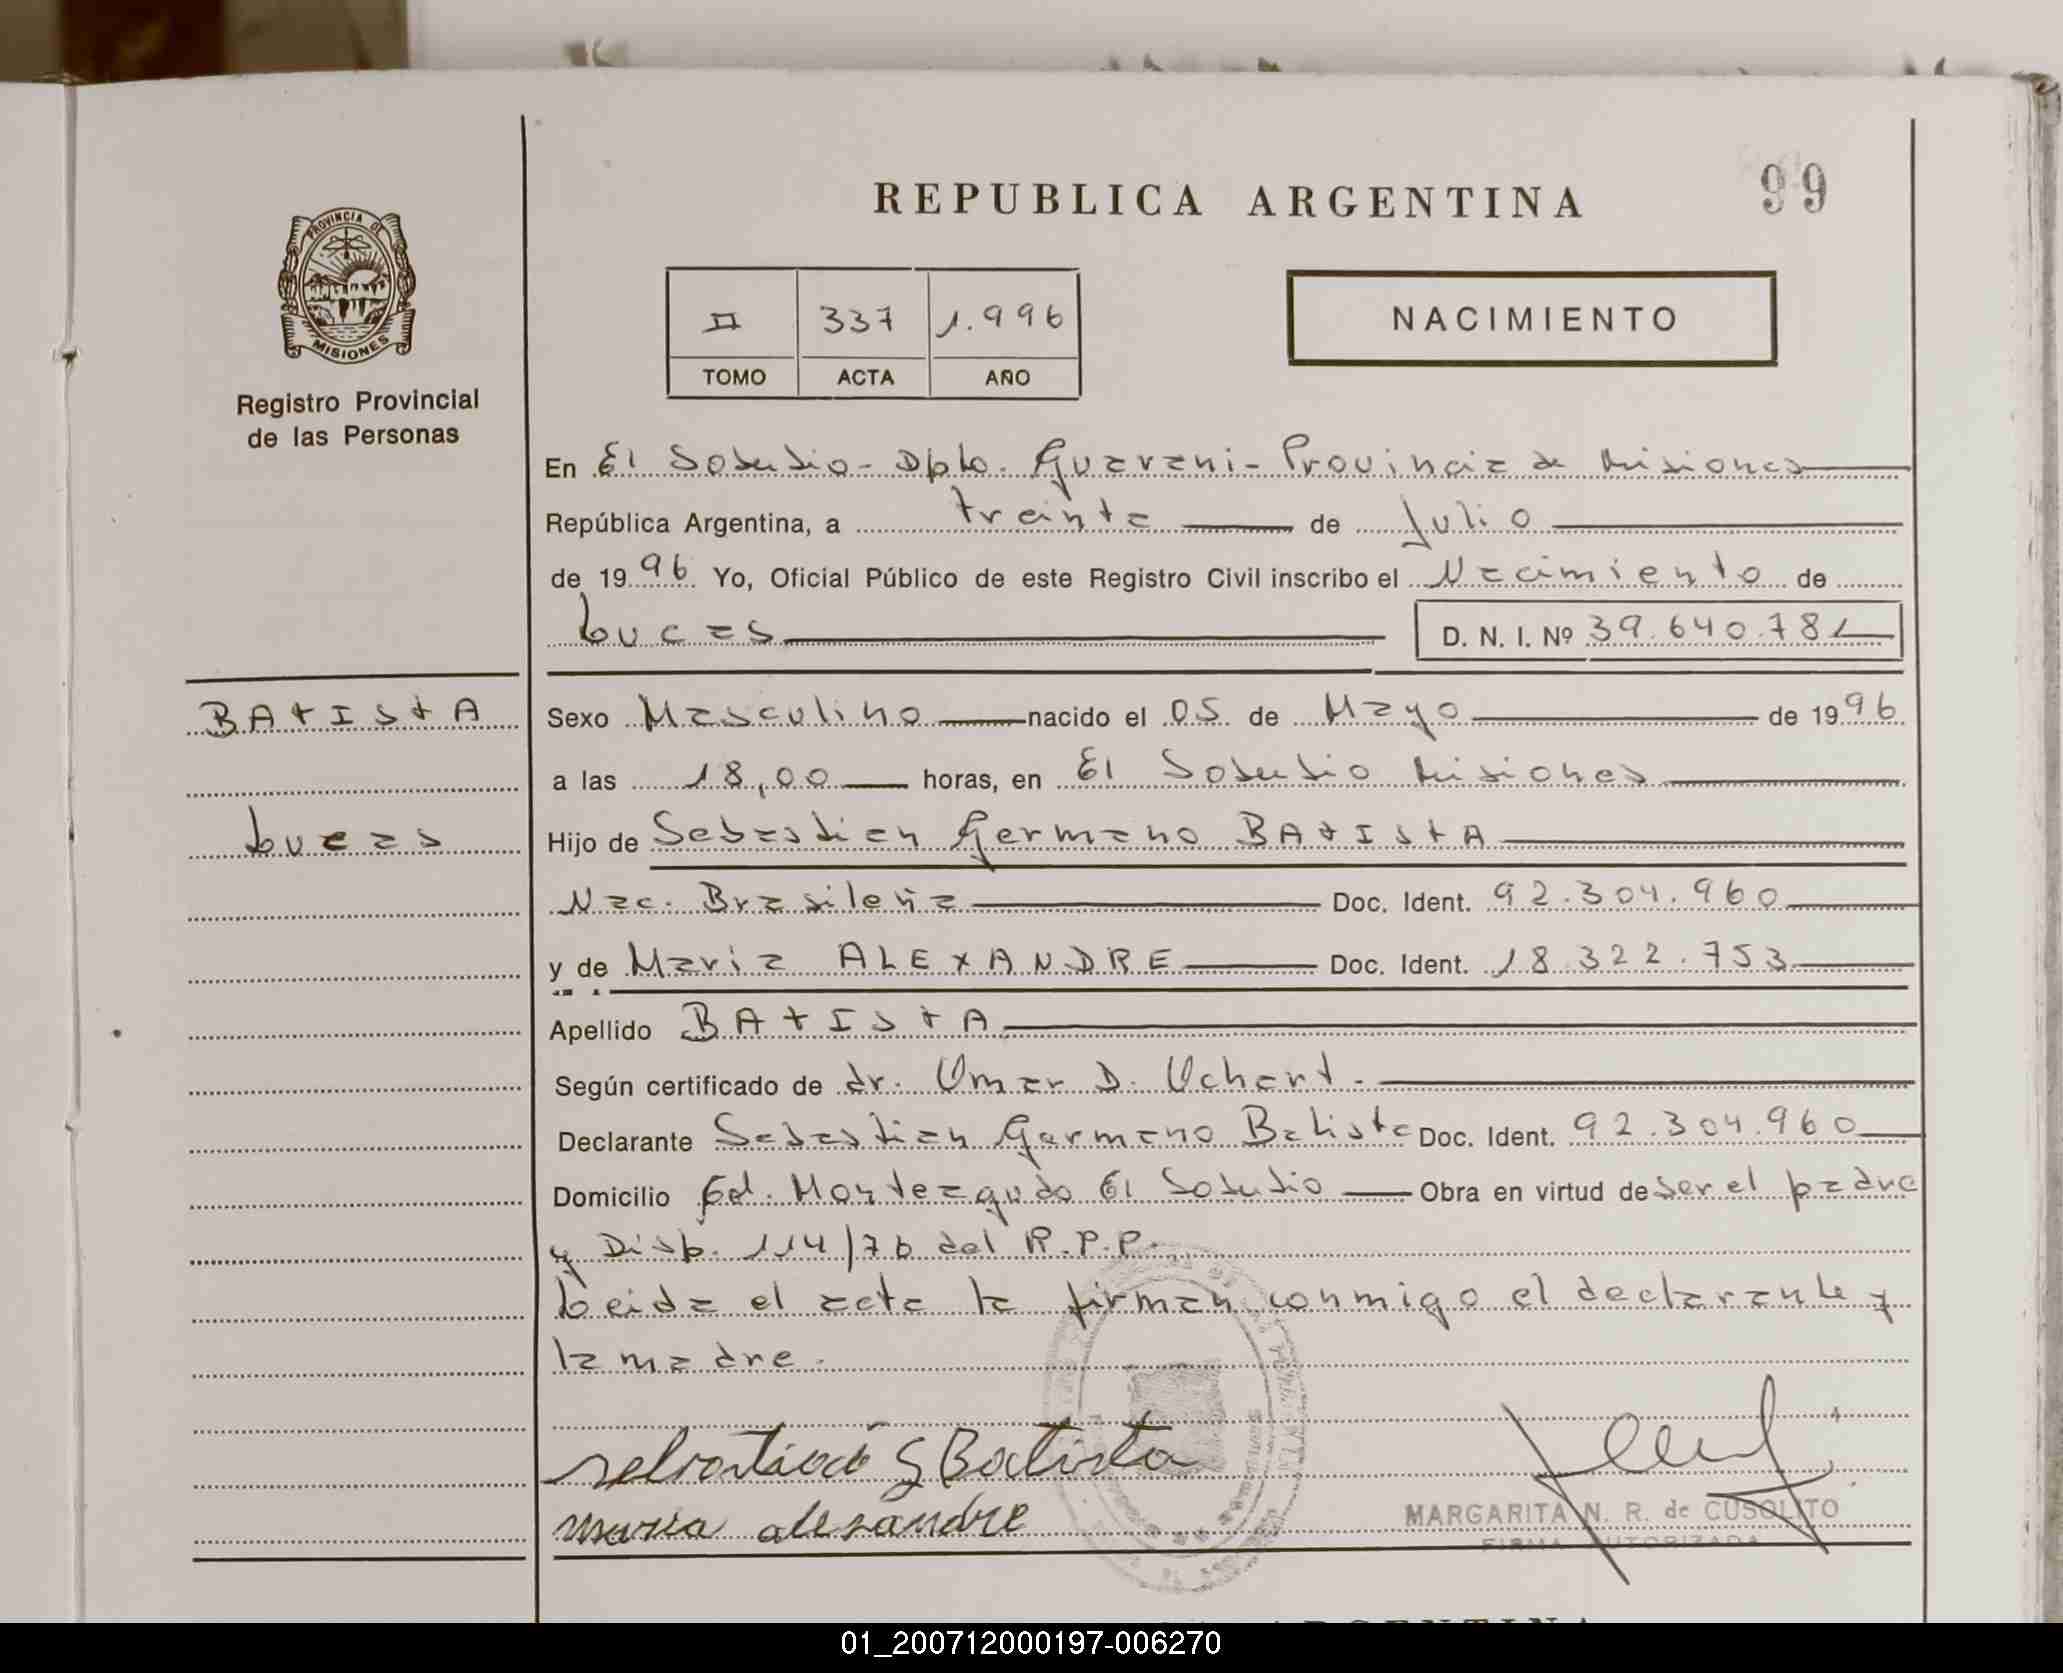 REPUBLICA ARGENTINA
99
PROVINCIA DE
MISIONES
Registro Provincial
de las Personas
II 337 1.996
TOMO ACTA AÑO
NACIMIENTO
En El Soberbio - Dpto. Guarani - Provincia de Misiones
República Argentina, a treinta de Julio
de 1996 Yo, Oficial Público de este Registro Civil inscribo el Nacimiento de
Lucas D. N. I. Nº 39.640.781
BATISTA
Sexo Masculino nacido el 05 de Mayo de 1996
a las 18,00 horas, en El Soberbio Misiones
Lucas
Hijo de Sebastian Germano BATISTA
Nac. Brasileña Doc. Ident. 92.304.960
y de Maria ALEXANDRE Doc. Ident. 18.322.753
Apellido BATISTA
Según certificado de dr. Omar D. Uchert.
Declarante Sebastian Germano Batista Doc. Ident. 92.304.960
Domicilio Cd. Monteagudo El Soberbio Obra en virtud de ser el padre
y Disp. 114/76 del R.P.P.
Leida el acta la firman conmigo el declarante y
la madre.
G Batista
maria alexandre
MARGARITA N. R. de CUSOLITO
FIRMA AUTORIZADA
ARGENTINA
01_200712000197-006270